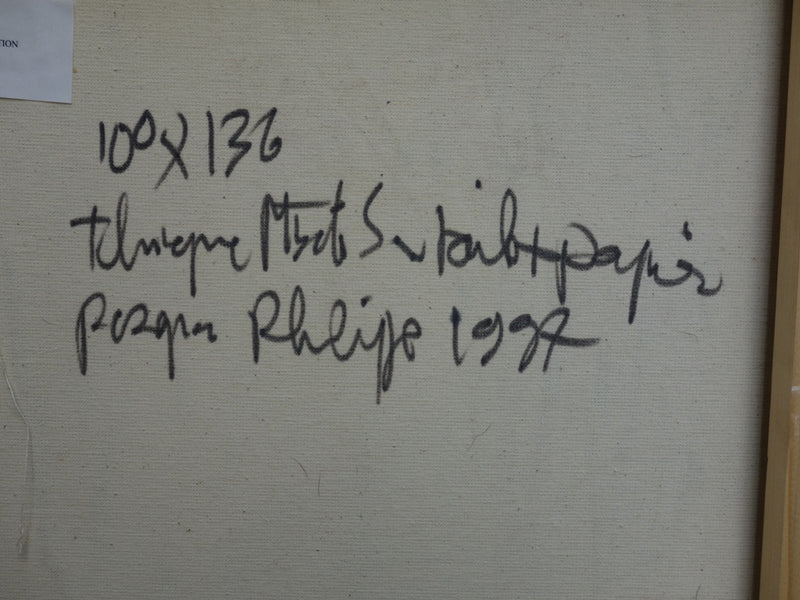 TION
100 X 136
technique Mixte Sur toile + papier
Philippe 1997